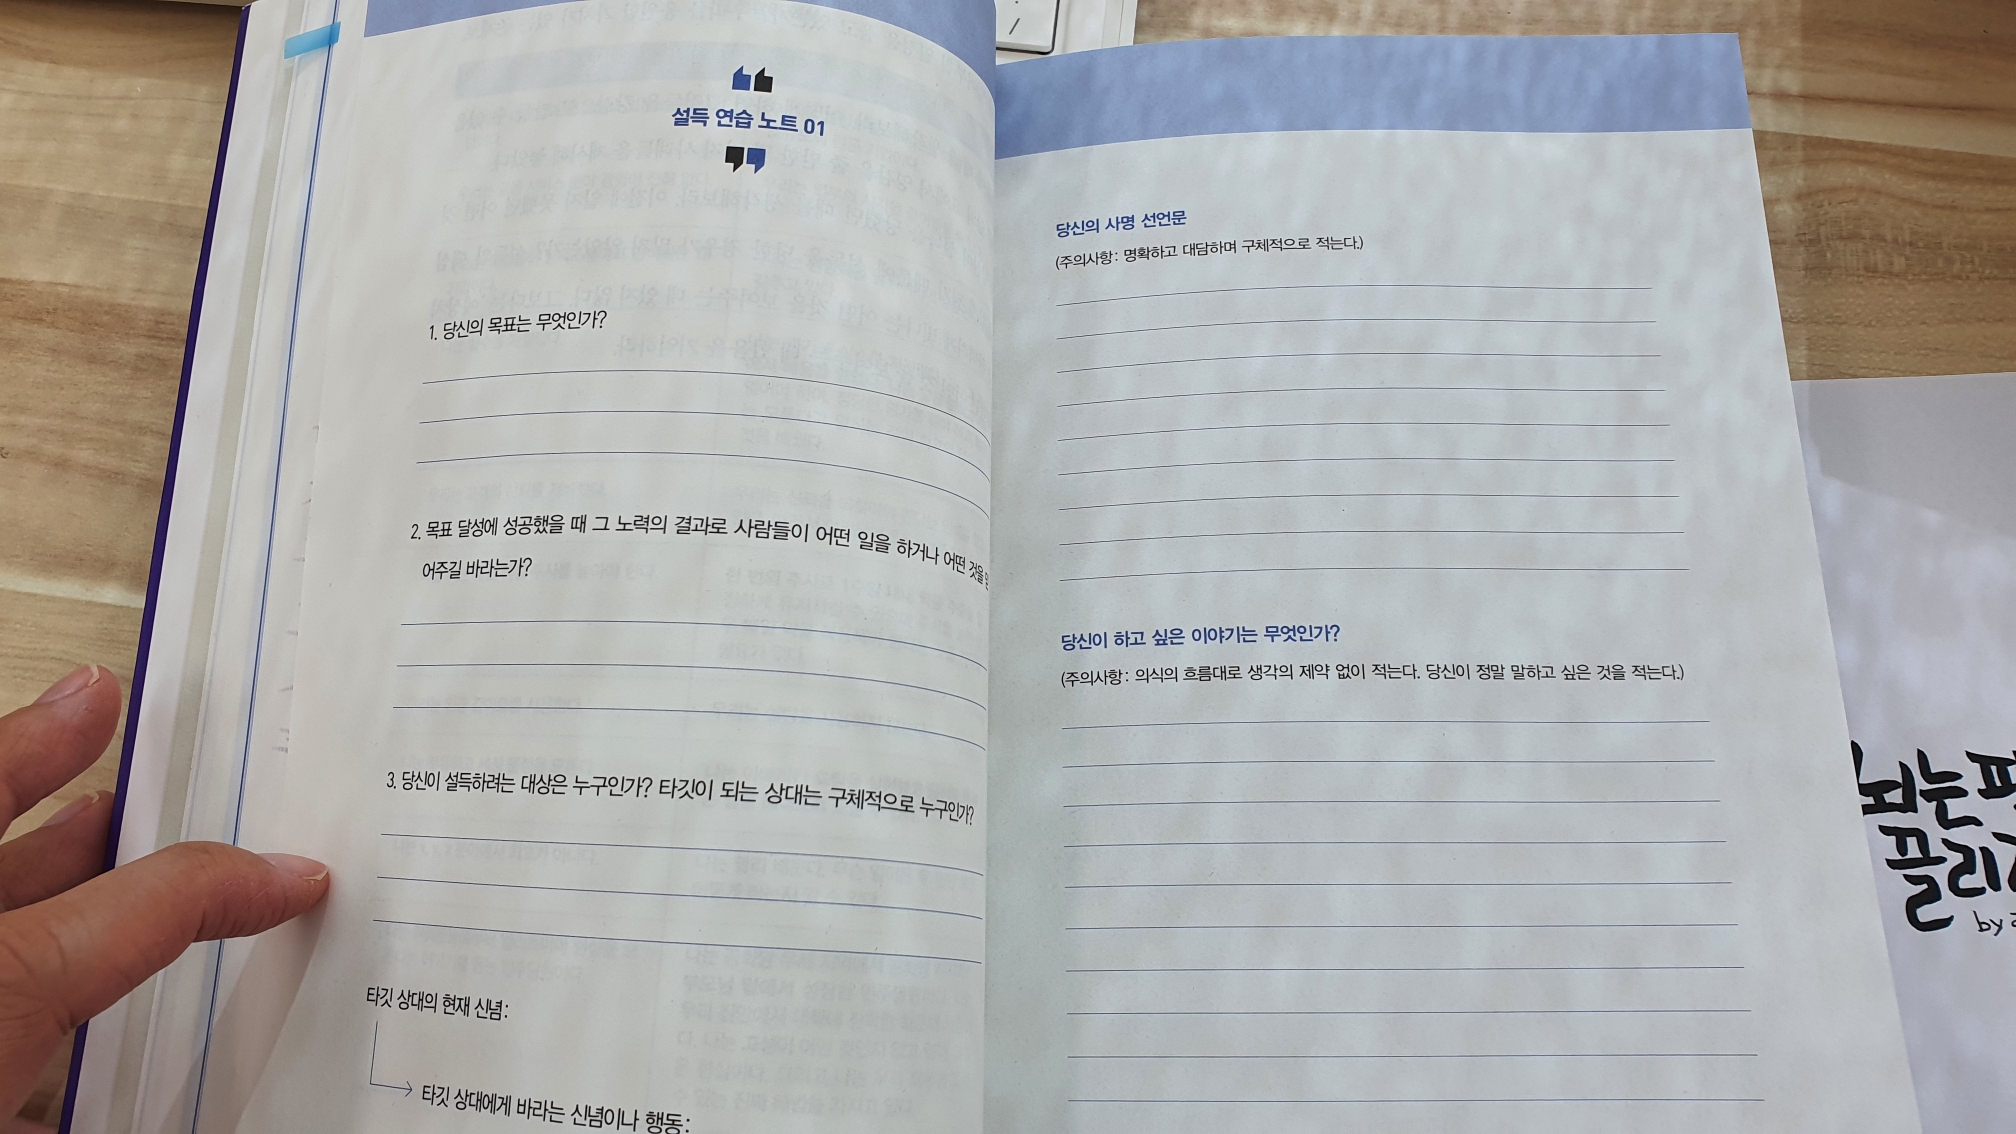 설득 연습 노트 01
1. 당신의 목표는 무엇인가?
2. 목표 달성에 성공했을 때 그 노력의 결과로 사람들이 어떤 일을 하거나 어떤 것을
어주길 바라는가?
3. 당신이 설득하려는 대상은 누구인가? 타깃이 되는 상대는 구체적으로 누구인가?
타깃 상대의 현재 신념:
타깃 상대에게 바라는 신념이나 행동:
당신의 사명 선언문
(주의사항: 명확하고 대담하며 구체적으로 적는다.)
당신이 하고 싶은 이야기는 무엇인가?
(주의사항: 의식의 흐름대로 생각의 제약 없이 적는다. 당신이 정말 말하고 싶은 것을 적는다.)
뇌는
끌리
by